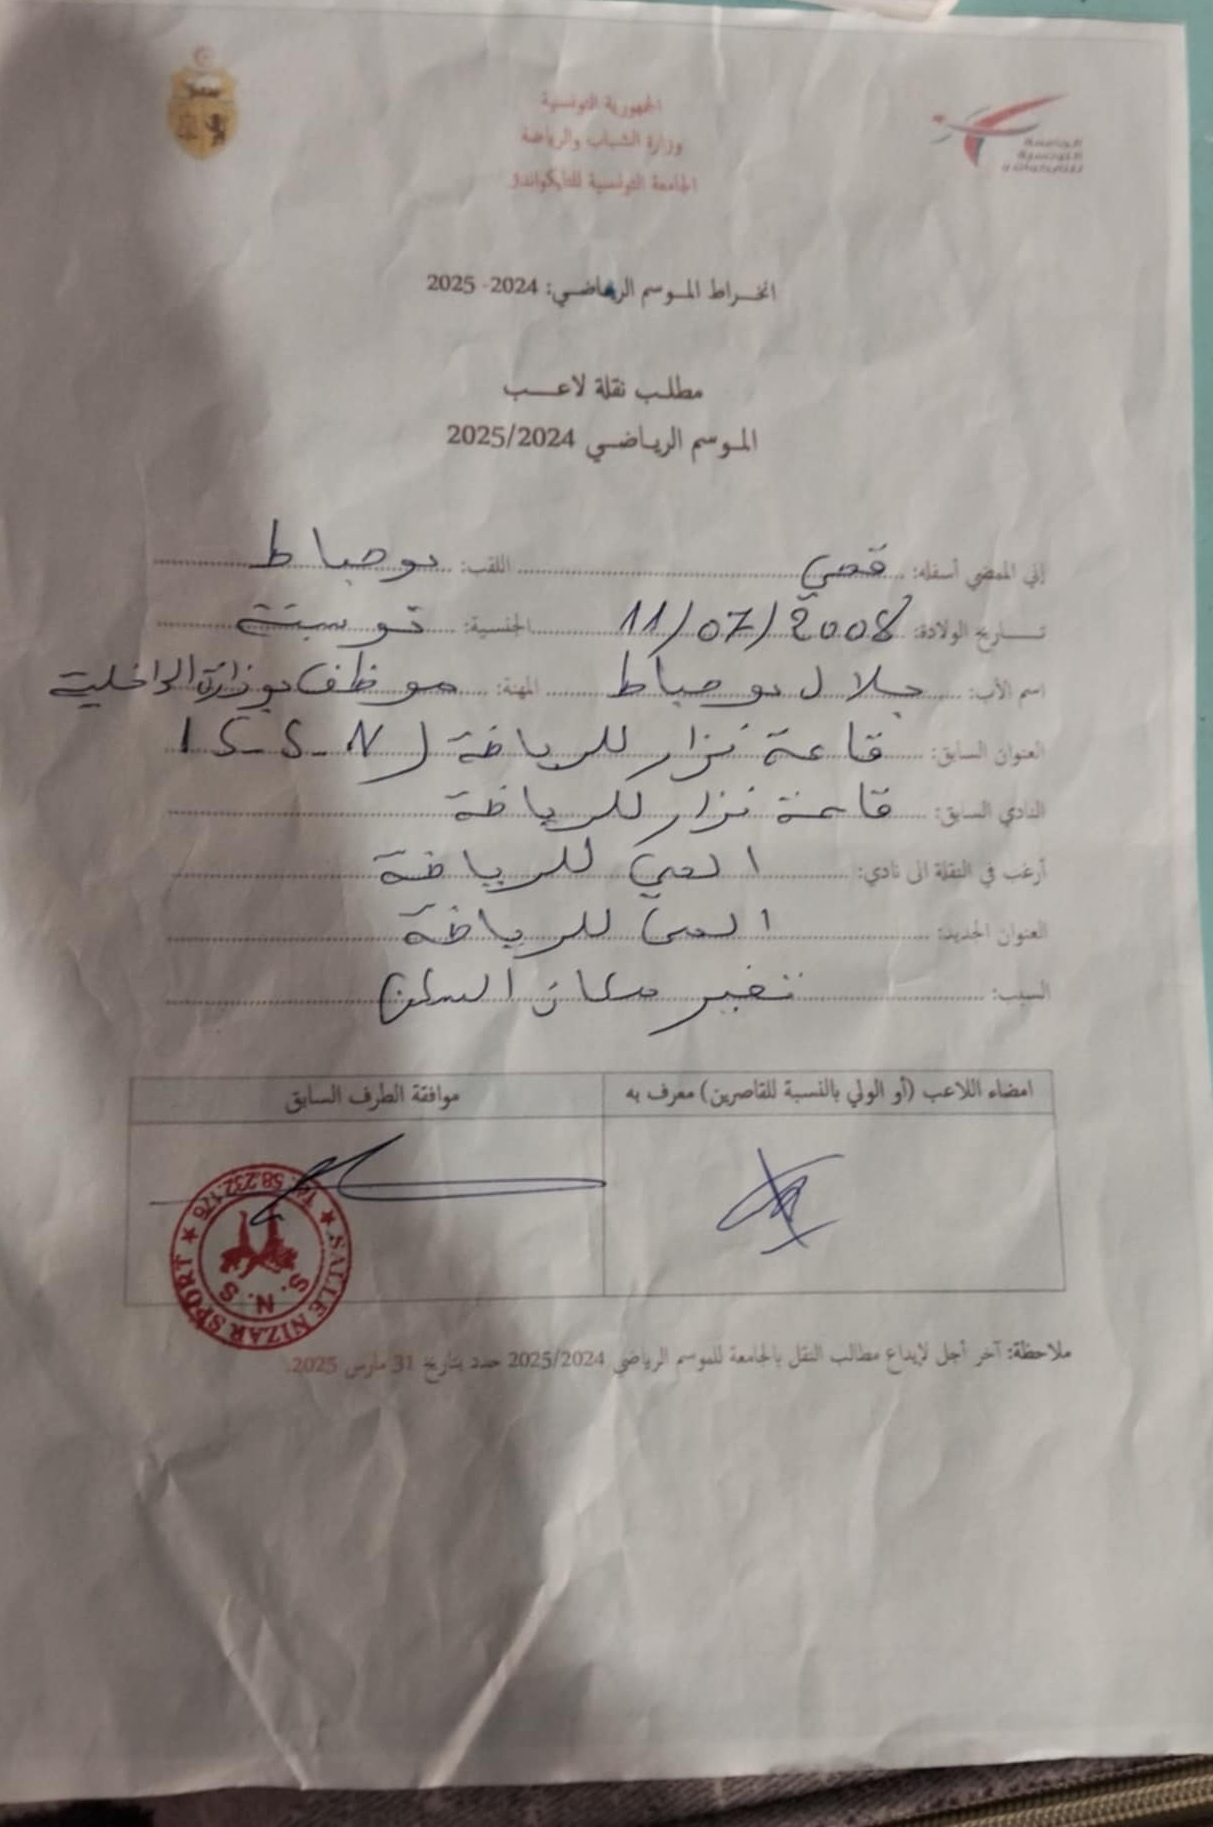 الجمهورية التونسية
وزارة الشباب والرياضة
الجامعة التونسية للتايكواندو
الجامعة
التونسية
للتايكواندو
انخـراط الموسم الرياضي: 2024- 2025
مطلب نقلة لاعب
الموسم الرياضي 2025/2024
إني الممضي أسفله: قصي اللقب: بوصباط
تاريخ الولادة: 11/07/2008 الجنسية: تونسية
اسم الأب: جلال بوصباط المهنة: موظف بوزارة الداخلية
العنوان السابق: قاعة نزار للرياضة (S-S-N)
النادي السابق: قاعة نزار للرياضة
أرغب في النقلة الى نادي: للرياضة
العنوان الجديد: للرياضة
السبب: تغير مكان السكن
امضاء اللاعب (أو الولي بالنسبة للقاصرين) معرف به
موافقة الطرف السابق
★ SALLE NIZAR SPORT ★ Tél: 58.232.176
S.N.S
ملاحظة: آخر أجل لإيداع مطالب النقل بالجامعة للموسم الرياضي 2025/2024 حدد بتاريخ 31 مارس 2025.